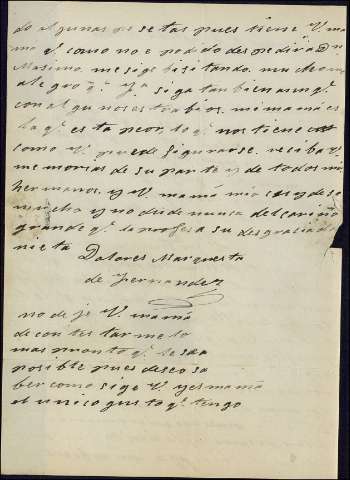 do algunas pe se tas pues tiene V. ma
ma q.e como no e podido despedir a Dn
Masimo me sige bisitando. mucho me
alegro q.e Ya siga tan bien aunq.e
con algunos estrabios. mi mamá es
la q.e esta peor, lo q.e nos tiene
como V. puede figurarse. reciba V.
memorias de su parte y de todos mis
hermanos. y V. mamá mia
mucho y no dude nunca del cariño
grande q.e le profesa su desgraciada
nieta
Dolores Marquesta
de Fernandez
no de je V. mamá
de con tes tar me lo
mas pronto q.e le sea
posible pues deseo sa
ber como sige V. y es mamá
el unico gus to q.e tengo